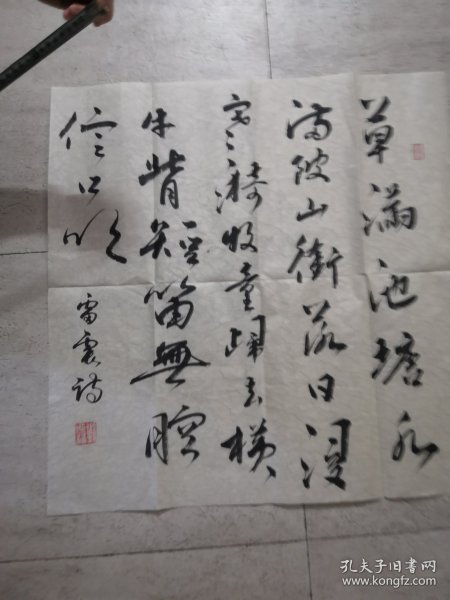 草滿池塘水
滿陂山銜落日浸
寒漪牧童歸去橫
牛背短笛無腔
信口吹
雷震詩
孔夫子旧书网
www.kongfz.com